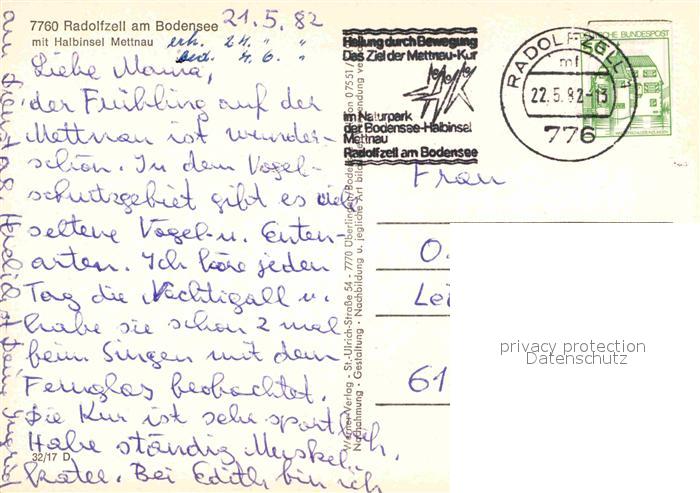 7760 Radolfzell am Bodensee
mit Halbinsel Mettnau
21.5.82
erh. 24. " "
4. 6. "
Liebe Mama,
der Frühling auf der
Mettnau ist wunder-
schön. In dem Vogel-
schutzgebiet gibt es viele
seltene Vogel- u. Enten-
arten. Ich höre jeden
Tag die Nachtigall u.
habe sie schon 2 mal
beim Singen mit dem
Fernglas beobachtet.
Die Kur ist sehr sportlich.
Habe ständig Muskel-
kater. Bei Edith bin ich
am Dienstag. Herzlichst Deine
32/17 D
Werner-Verlag · St.-Ulrich-Straße 54 - 7770 Überlingen/Bodensee
Nachahmung · Gestaltung · Nachbildung u. jegliche Art
Heilung durch Bewegung
Das Ziel der Mettnau-Kur
im Naturpark
der Bodensee-Halbinsel
Mettnau
Radolfzell am Bodensee
RADOLFZELL
mf
22.5.82-13
776
DEUTSCHE BUNDESPOST
Frau
O.
Lei
61
privacy protection
Datenschutz